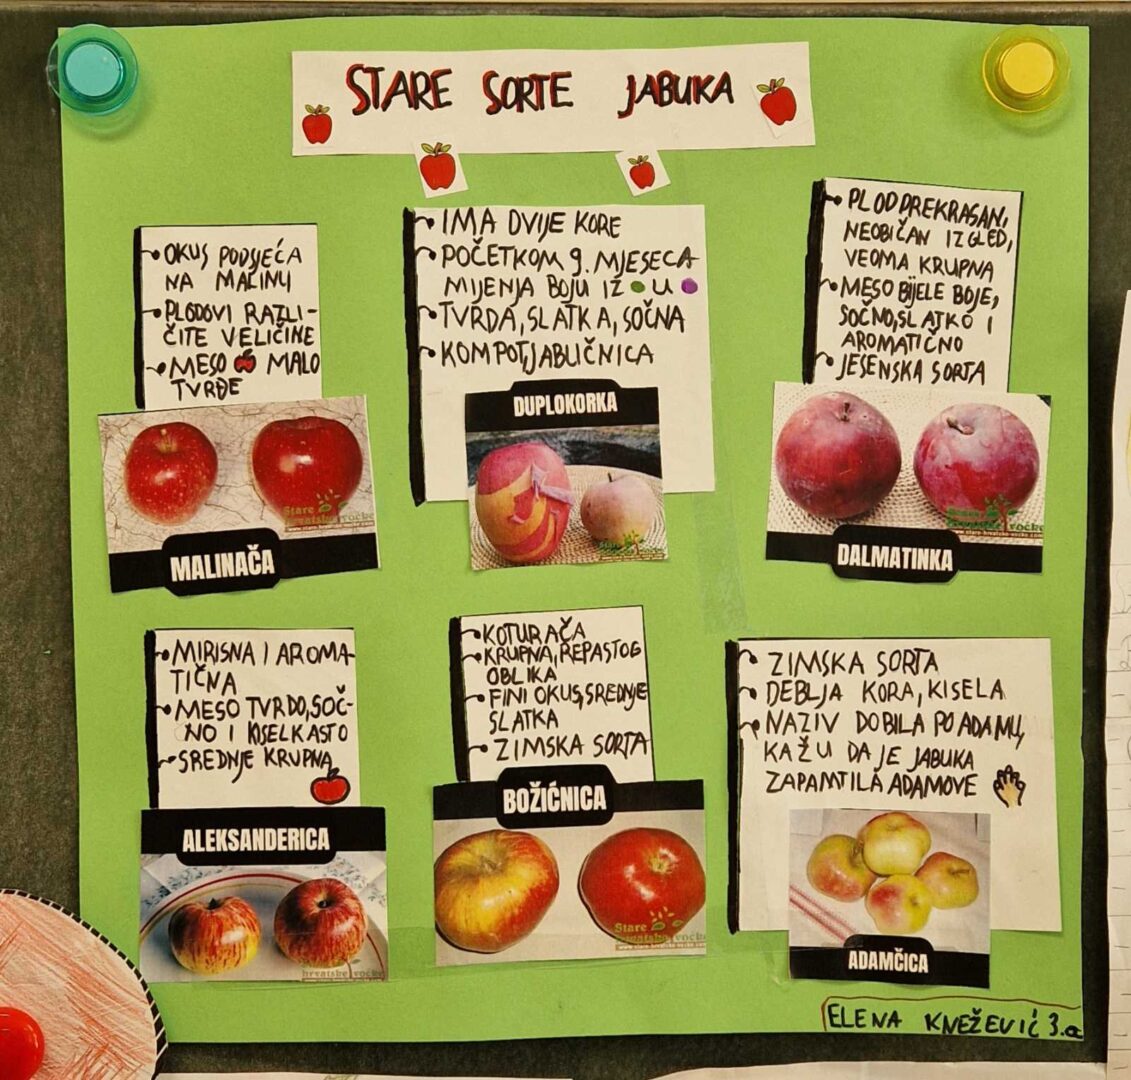 STARE SORTE JABUKA
OKUS PODSJEĆA
NA MALINU
PLODOVI RAZLI-
ČITE VELIČINE
MESO MALO
TVRĐE
MALINAČA
IMA DVIJE KORE
POČETKOM 9. MJESECA
MIJENJA BOJU IZ U
TVRDA, SLATKA, SOČNA
KOMPOT, JABLIČNICA
DUPLOKORKA
PLOD PREKRASAN,
NEOBIČAN IZGLED,
VEOMA KRUPNA
MESO BIJELE BOJE,
SOČNO, SLATKO I
AROMATIČNO
JESENSKA SORTA
DALMATINKA
MIRISNA I AROMA-
TIČNA
MESO TVRDO, SOČ-
NO I KISELKASTO
SREDNJE KRUPNA
ALEKSANDERICA
KOTURAČA
KRUPNA, REPASTOG
OBLIKA
FINI OKUS, SREDNJE
SLATKA
ZIMSKA SORTA
BOŽIĆNICA
ZIMSKA SORTA
DEBLJA KORA, KISELA
NAZIV DOBILA PO ADAMU,
KAŽU DA JE JABUKA
ZAPAMTILA ADAMOVE
ADAMČICA
ELENA KNEŽEVIĆ 3.a
Stare
hrvatske voćke
www.stare-hrvatske-vocke.com